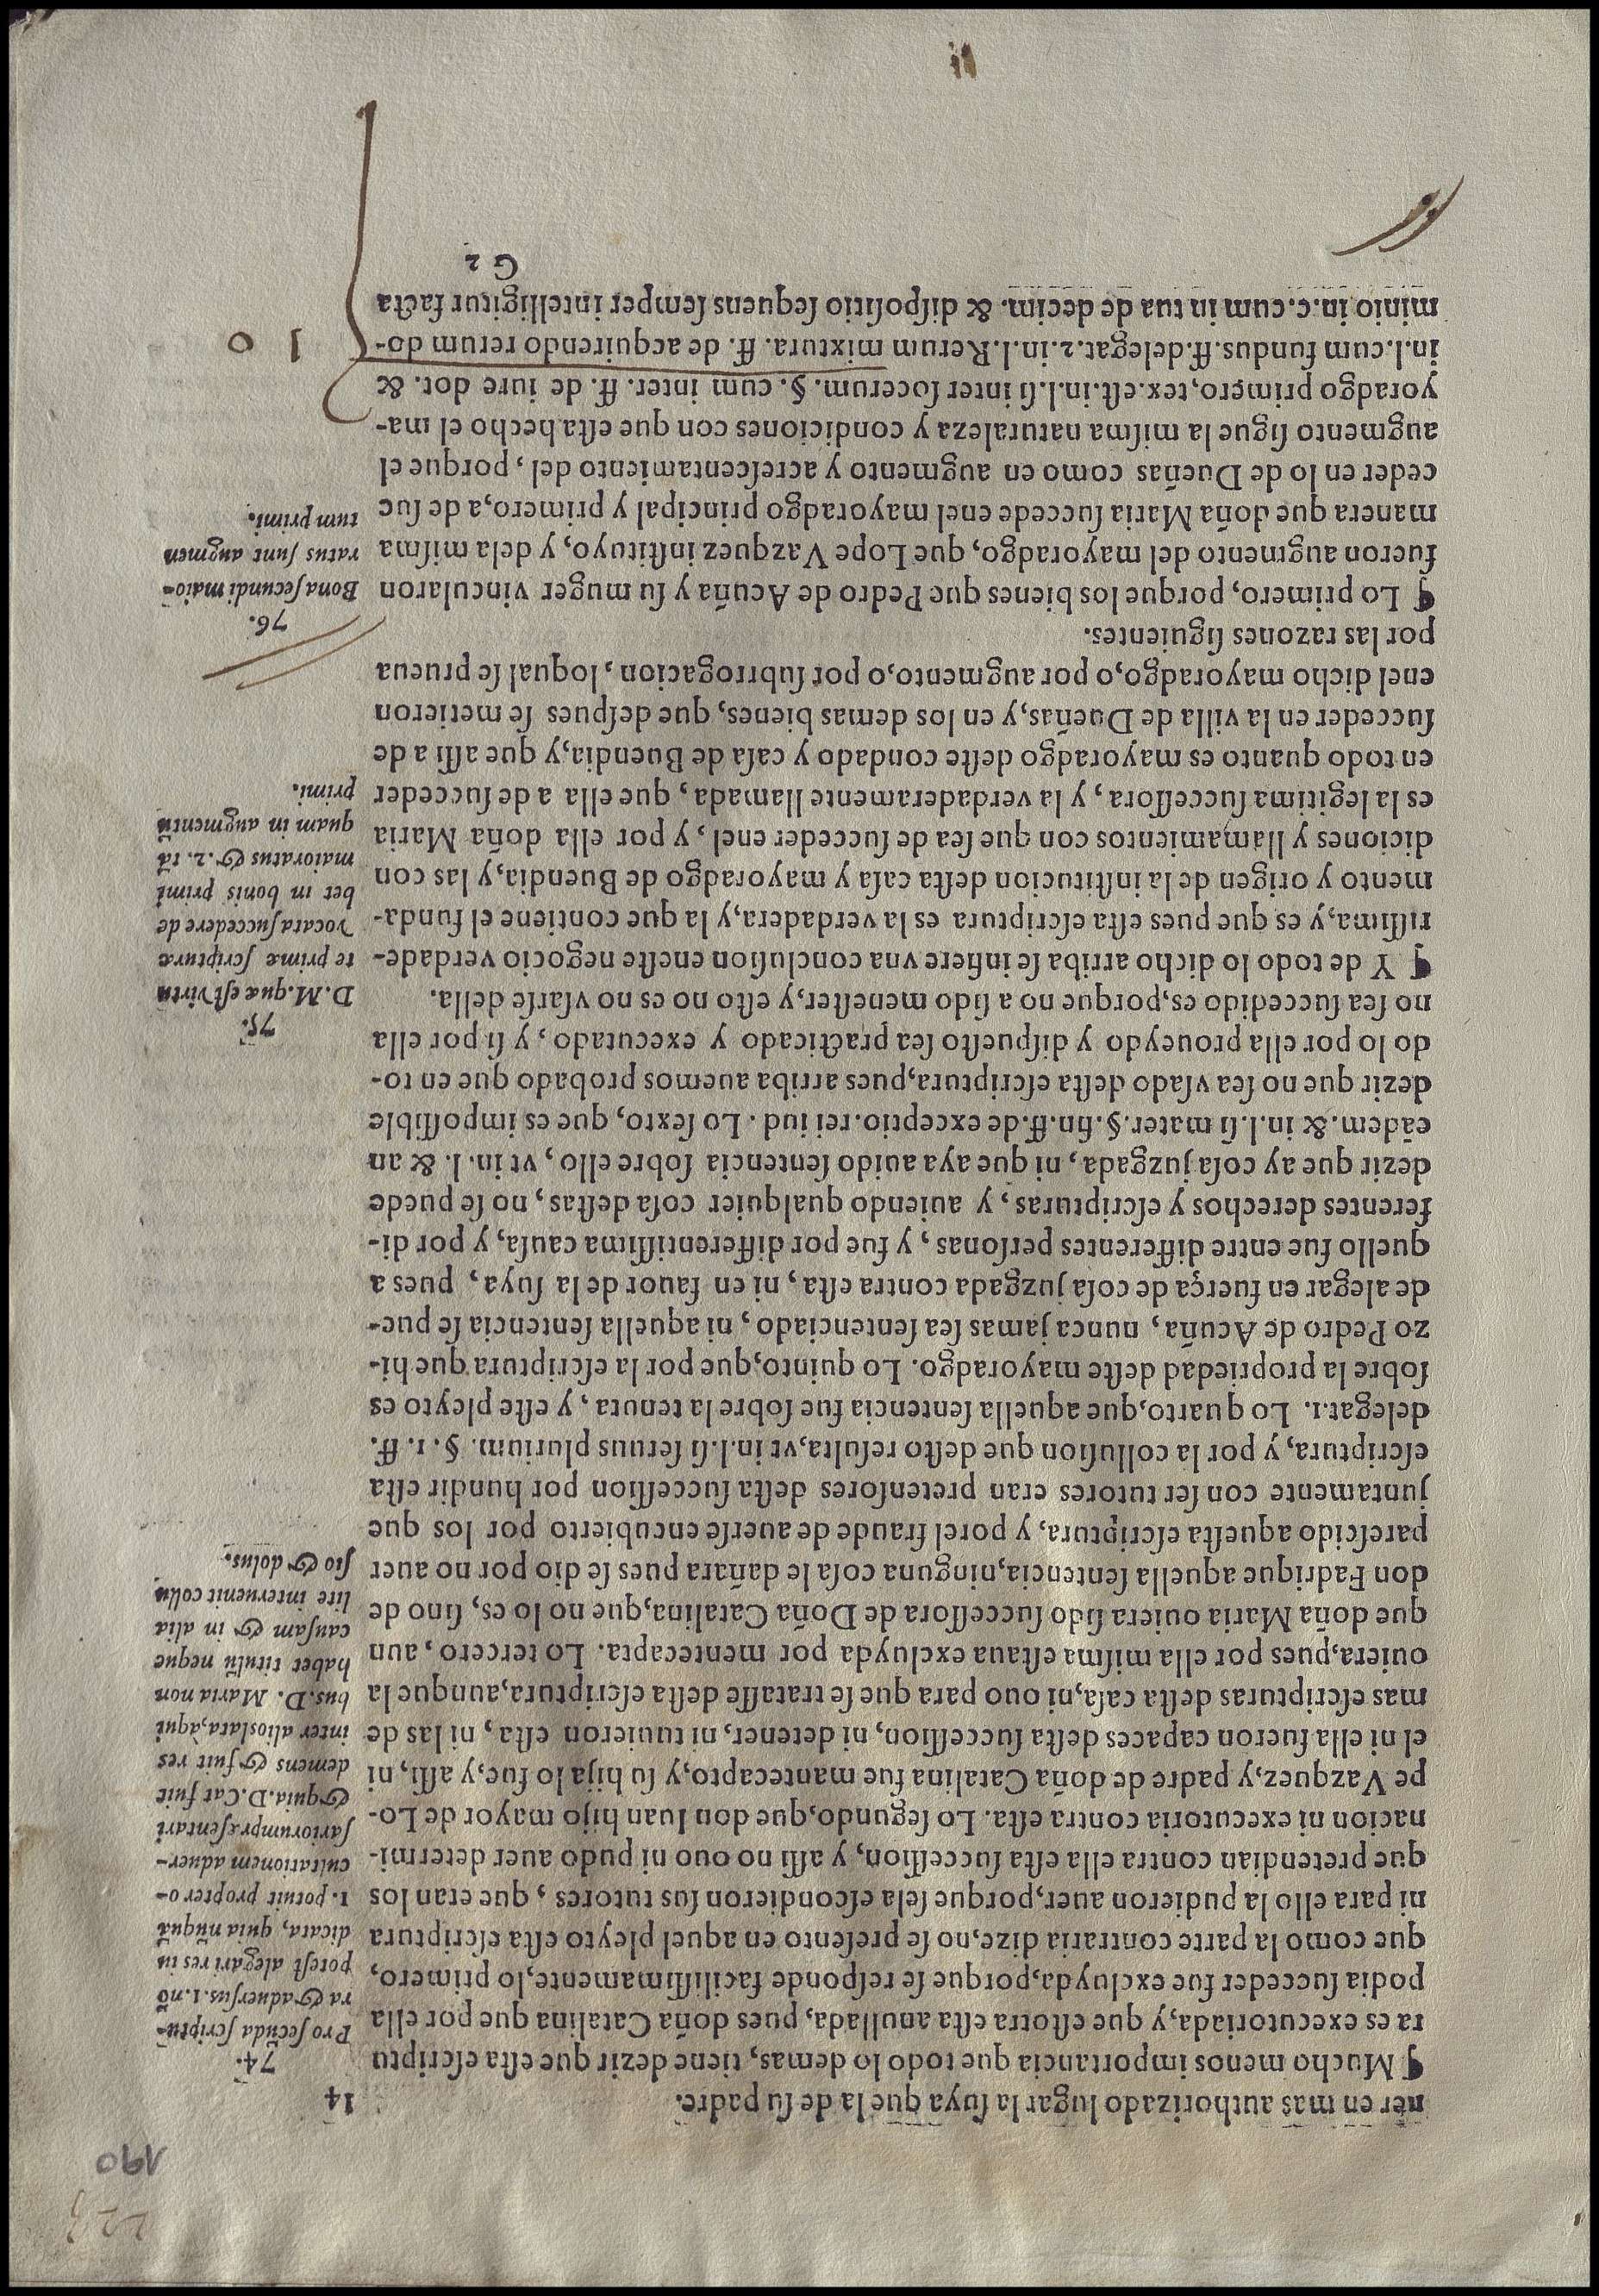 223
190
14
ner en mas authorizado lugar la ſuya que la de ſu padre.
¶ Mucho menos importancia que todo lo demas, tiene dezir que eſta eſcriptu
ra es executoriada, y que eſtotra eſta anullada, pues doña Catalina que por ella
podia ſucceder fue excluyda, porque ſe reſponde faciliſſimamente, lo primero,
que como la parte contraria dize, no ſe preſento en aquel pleyto eſta eſcriptura
ni para ello la pudieron auer, porque ſela eſcondieron ſus tutores, que eran los
que pretendian contra ella eſta ſucceſſion, y aſſi no ouo ni pudo auer determi-
nacion ni executoria contra eſta. Lo ſegundo, que don Iuan hijo mayor de Lo-
pe Vazquez, y padre de doña Catalina fue mantecapto, y ſu hija lo fue, y aſſi, ni
el ni ella fueron capaces deſta ſucceſſion, ni detener, ni tuuieron eſta, ni las de
mas eſcripturas deſta caſa, ni ouo para que ſe trataſſe deſta eſcriptura, aunque la
ouiera, pues por ella miſma eſtaua excluyda por mentecapta. Lo tercero, aun
que doña Maria ouiera ſido ſucceſſora de Doña Catalina, que no lo es, ſino de
don Fadrique aquella ſentencia, ninguna coſa le dañara pues ſe dio por no auer
pareſcido aqueſta eſcriptura, y porel fraude de auerſe encubierto por los que
juntamente con ſer tutores eran pretenſores deſta ſucceſſion por hundir eſta
eſcriptura, y por la colluſion que deſto reſulta, vt in.l.ſi ſeruus plurium. §.1. ff.
delegat.1. Lo quarto, que aquella ſentencia fue ſobre la tenuta, y eſte pleyto es
ſobre la propriedad deſte mayoradgo. Lo quinto, que por la eſcriptura que hi-
zo Pedro de Acuña, nunca jamas ſea ſentenciado, ni aquella ſentencia ſe pue-
de alegar en fuerça de coſa juzgada contra eſta, ni en fauor de la ſuya, pues a
quello fue entre differentes perſonas, y fue por differentiſſima cauſa, y por di-
ferentes derechos y eſcripturas, y auiendo qualquier coſa deſtas, no ſe puede
dezir que ay coſa juzgada, ni que aya auido ſentencia ſobre ello, vt in. l. & an
eādem. & in.l.ſi mater.§.fin.ff.de exceptio.rei iud. Lo ſexto, que es impoſſible
dezir que no ſea vſado deſta eſcriptura, pues arriba auemos probado que en to-
do lo por ella proueydo y diſpueſto ſea practicado y executado, y ſi por ella
no ſea ſuccedido es, porque no a ſido meneſter, y eſto no es no vſarſe della.
¶ Y de todo lo dicho arriba ſe infiere vna concluſion eneſte negocio verdade-
riſſima, y es que pues eſta eſcriptura es la verdadera, y la que contiene el funda-
mento y origen de la inſtitucion deſta caſa y mayoradgo de Buendia, y las con
diciones y llamamientos con que ſea de ſucceder enel, y por ella doña Maria
es la legitima ſucceſſora, y la verdaderamente llamada, que ella a de ſucceder
en todo quanto es mayoradgo deſte condado y caſa de Buendia, y que aſſi a de
ſucceder en la villa de Dueñas, y en los demas bienes, que deſpues ſe metieron
enel dicho mayoradgo, o por augmento, o por ſubrrogacion, loqual ſe prueua
por las razones ſiguientes.
¶ Lo primero, porque los bienes que Pedro de Acuña y ſu muger vincularon
fueron augmento del mayoradgo, que Lope Vazquez inſtituyo, y dela miſma
manera que doña Maria ſuccede enel mayoradgo principal y primero, a de ſuc
ceder en lo de Dueñas como en augmento y acreſcentamiento del, porque el
augmento ſigue la miſma naturaleza y condiciones con que eſta hecho el ma-
yoradgo primero, tex.eſt.in.l.ſi inter ſocerum. §. cum inter. ff. de iure dot. &
in.l.cum fundus.ff.delegat.2.in.l.Rerum mixtura. ff. de acquirendo rerum do-
minio in.c.cum in tua de decim. & diſpoſitio ſequens ſemper intelligitur facta
G 2
74.
Pro ſecūda ſcriptu-
ra & aduerſus.1.nō
poteſt alegari res iu
dicata, quia nūquā
1. potuit propter o-
cultationem aduer-
ſariorum præſentari
& quia.D.Cat fuit
demens & fuit res
inter alios lata, à qui
bus.D. Maria non
habet titulū neque
cauſam & in alia
lite interuenit collu
ſio & dolus.
75.
D.M.quæ eſt virtu
te primæ ſcripturæ
vocata ſuccedere de
bet in bonis primi
maioratus &.2. tā
quam in augmentū
primi.
76.
Bona ſecundi maio-
ratus ſunt augmen
tum primi.
10